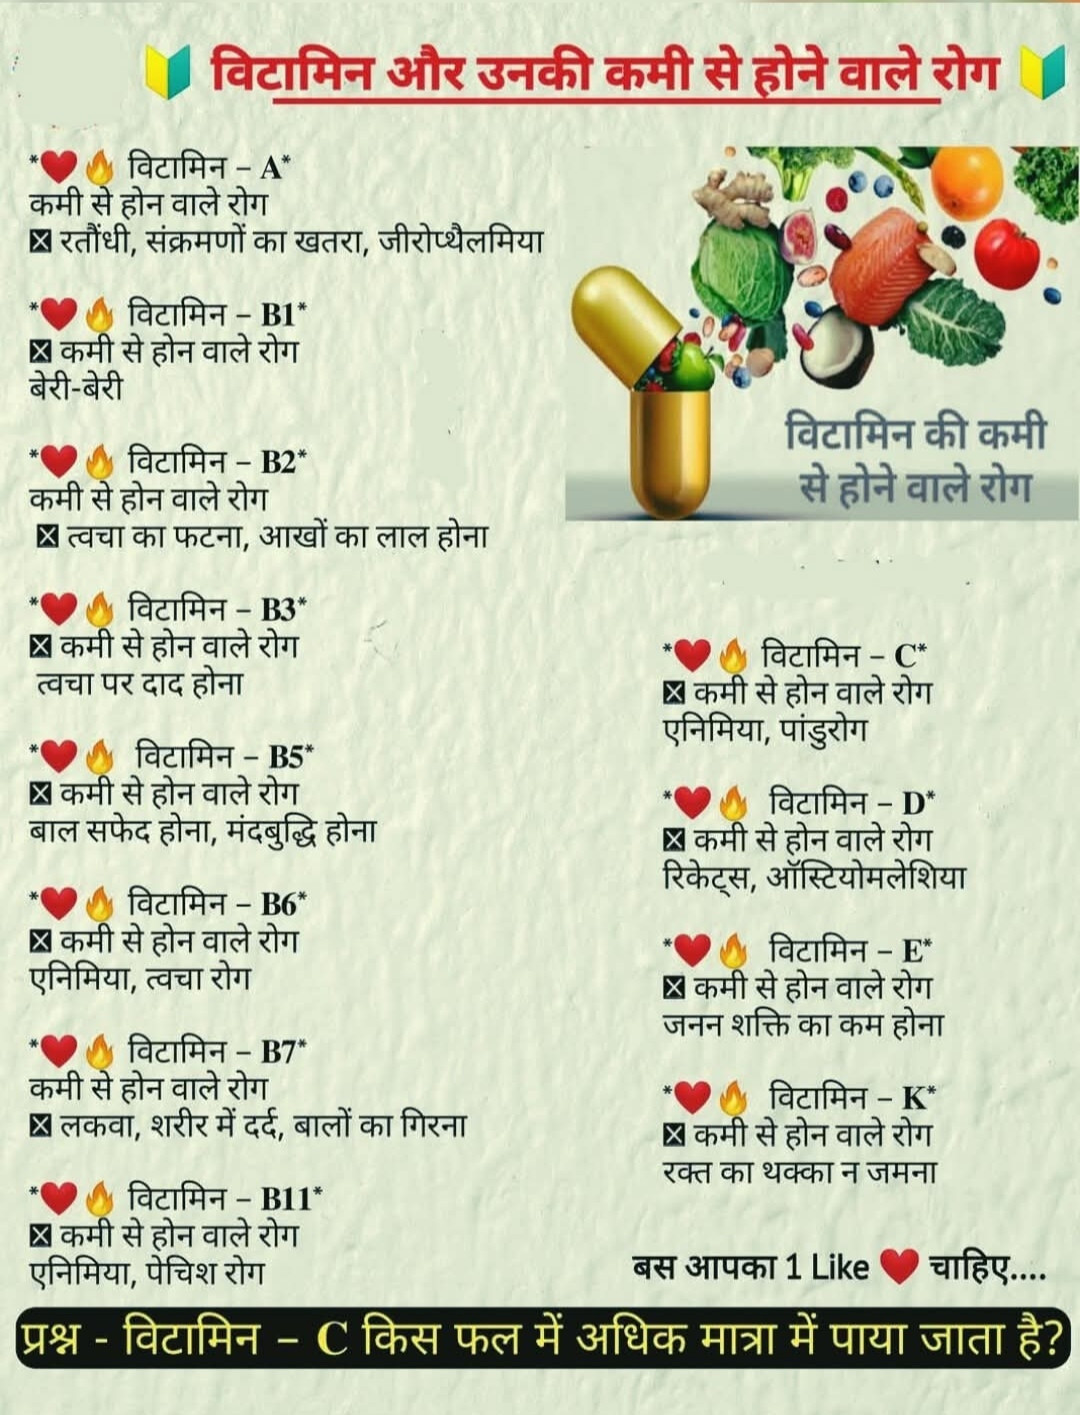 विटामिन और उनकी कमी से होने वाले रोग
*❤️🔥 विटामिन – A*
कमी से होन वाले रोग
☒ रतौंधी, संक्रमणों का खतरा, जीरोप्थैलमिया
*❤️🔥 विटामिन – B1*
☒ कमी से होन वाले रोग
बेरी-बेरी
*❤️🔥 विटामिन – B2*
कमी से होन वाले रोग
☒ त्वचा का फटना, आखों का लाल होना
*❤️🔥 विटामिन – B3*
☒ कमी से होन वाले रोग
त्वचा पर दाद होना
*❤️🔥 विटामिन – B5*
☒ कमी से होन वाले रोग
बाल सफेद होना, मंदबुद्धि होना
*❤️🔥 विटामिन – B6*
☒ कमी से होन वाले रोग
एनिमिया, त्वचा रोग
*❤️🔥 विटामिन – B7*
कमी से होन वाले रोग
☒ लकवा, शरीर में दर्द, बालों का गिरना
*❤️🔥 विटामिन – B11*
☒ कमी से होन वाले रोग
एनिमिया, पेचिश रोग
विटामिन की कमी
से होने वाले रोग
*❤️🔥 विटामिन – C*
☒ कमी से होन वाले रोग
एनिमिया, पांडुरोग
*❤️🔥 विटामिन – D*
☒ कमी से होन वाले रोग
रिकेट्स, ऑस्टियोमलेशिया
*❤️🔥 विटामिन – E*
☒ कमी से होन वाले रोग
जनन शक्ति का कम होना
*❤️🔥 विटामिन – K*
☒ कमी से होन वाले रोग
रक्त का थक्का न जमना
बस आपका 1 Like ❤️ चाहिए....
प्रश्न - विटामिन – C किस फल में अधिक मात्रा में पाया जाता है?